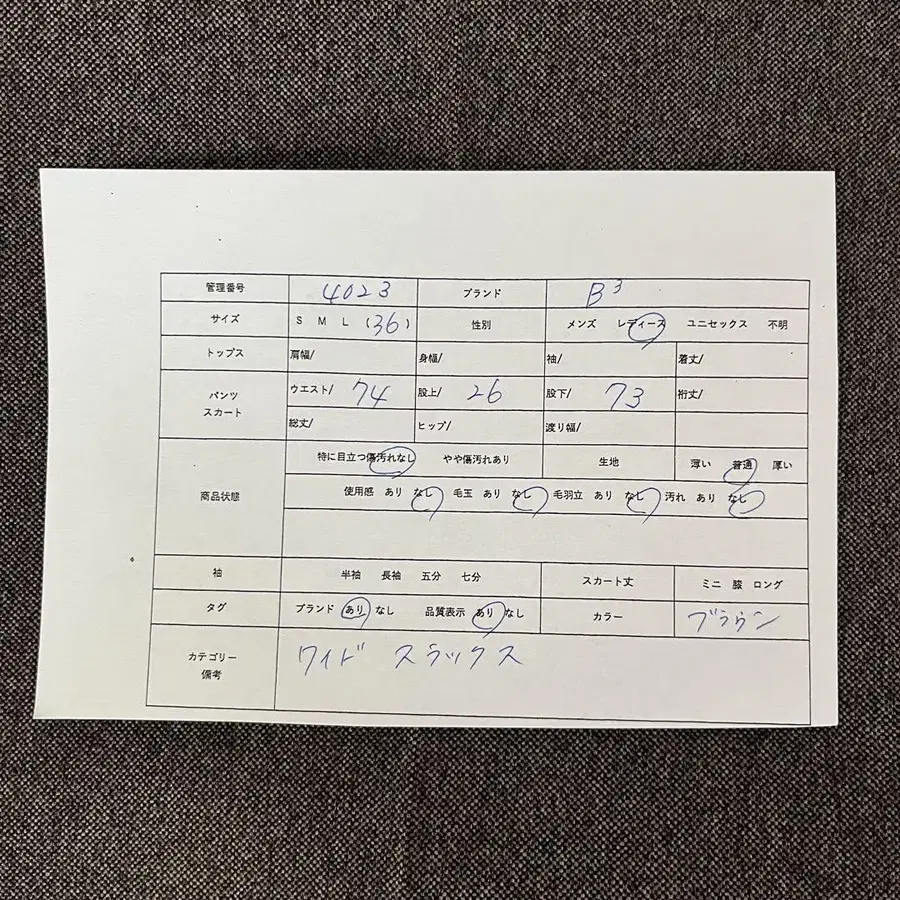 管理番号 4023 ブランド B³
サイズ S M L (36) 性別 メンズ レディース ユニセックス 不明
トップス 肩幅/ 身幅/ 袖/ 着丈/
パンツ スカート ウエスト/ 74 股上/ 26 股下/ 73 裄丈/
総丈/ ヒップ/ 渡り幅/
商品状態 特に目立つ傷汚れなし やや傷汚れあり 生地 薄い 普通 厚い
使用感 あり なし 毛玉 あり なし 毛羽立 あり なし 汚れ あり なし
袖 半袖 長袖 五分 七分 スカート丈 ミニ 膝 ロング
タグ ブランド あり なし 品質表示 あり なし カラー ブラウン
カテゴリー 備考 ワイド スラックス